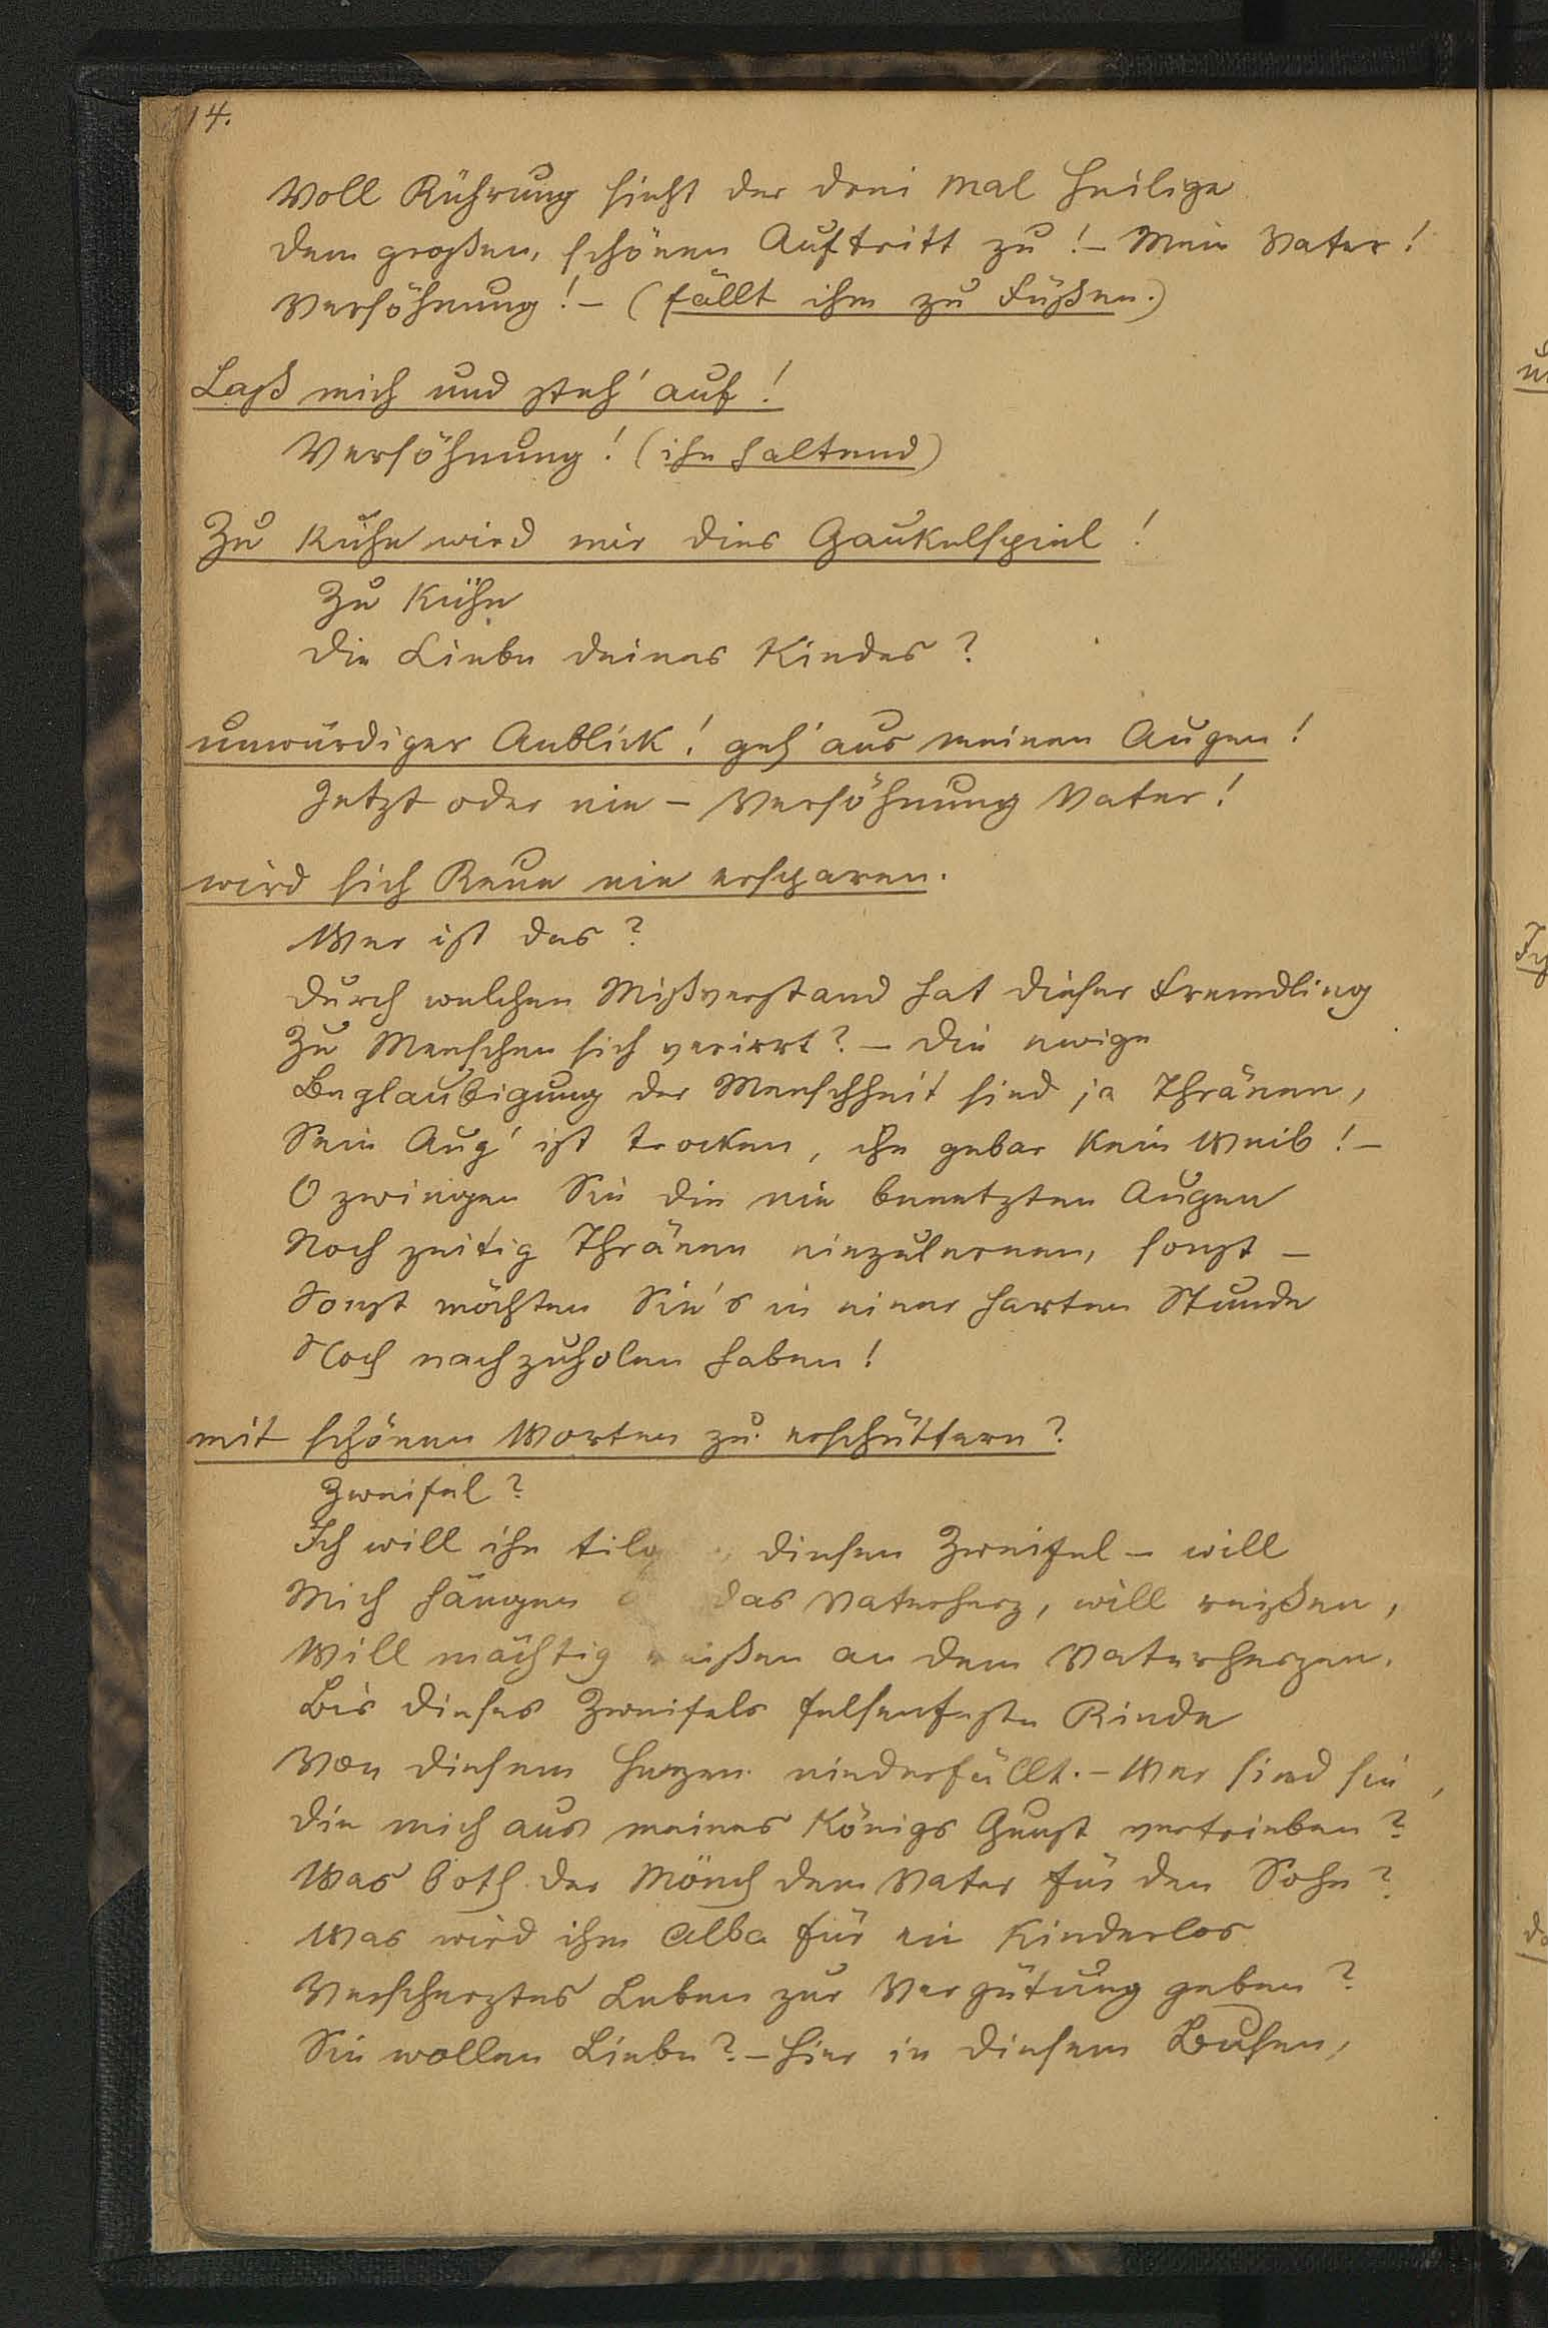 14.
Voll Rührung sieht der drei mal Heilige
dem großen, schönen Auftritt zu! – Mein Vater!
Versöhnung! – (fällt ihm zu Füßen.)
Laß mich und steh' auf!
Versöhnung! (ihn haltend)
Zu kühn wird mir dies Gaukelspiel!
Zu kühn
die Liebe deines Kindes?
unwürdiger Anblick! geh' aus meinen Augen!
Jetzt oder nie – Versöhnung Vater!
wird sich Reue nie ersparen.
Wer ist das?
durch welchen Mißverstand hat dieser Fremdling
Zu Menschen sich verirrt? – die ewige
Beglaubigung der Menschheit sind ja Thränen,
Sein Aug' ist trocken, ihn gebar kein Weib! –
O zwingen Sie die nie benetzten Augen
Noch zeitig Thränen einzulernen, sonst –
Sonst möchten Sie's in einer harten Stunde
Noch nachzuholen haben!
mit schönen Worten zu erschüttern?
Zweifel?
Ich will ihn tilg , diesen Zweifel – will
Mich hängen das Vaterherz, will reißen,
Will mächtig reißen an dem Vaterherzen.
Bis dieses Zweifels felsenfeste Rinde
Von diesem Herzen niederfällt. – Wer sind sie,
die mich aus meines Königs Gunst vertrieben?
Was both der Mönch dem Vater für den Sohn?
Was wird ihm Alba für ein kinderlos
Verscherztes Leben zur Vergütung geben?
Sie wollen Liebe? – hier in diesem Busen,